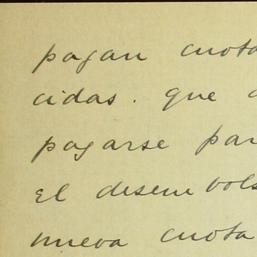 pagan cuota
cidas. que
pagarse par
El desembols
nueva cuota